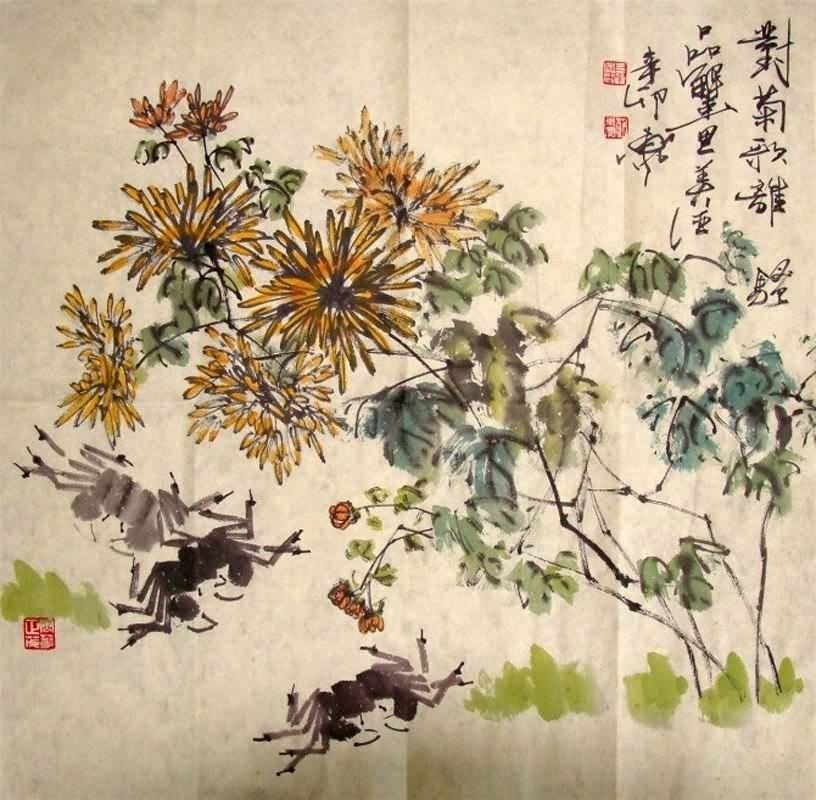 對菊歌離騷
品蟹思美酒
辛卯